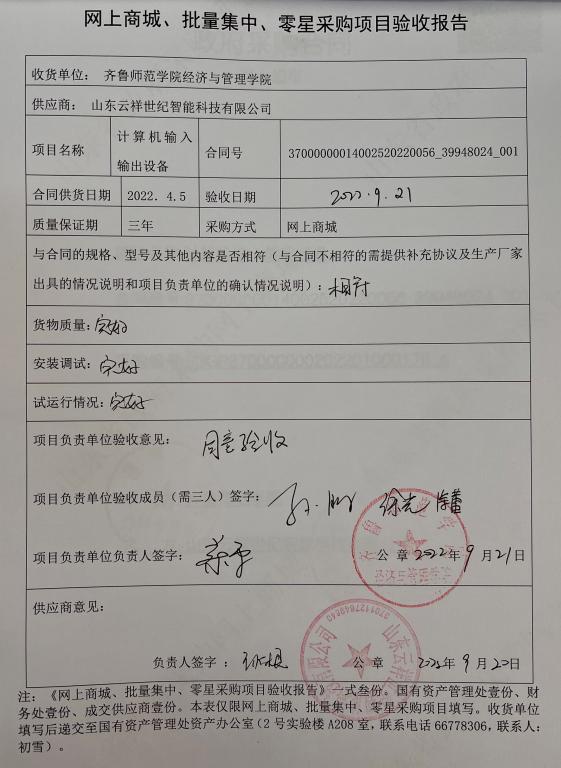 网上商城、批量集中、零星采购项目验收报告
收货单位: 齐鲁师范学院经济与管理学院
供应商: 山东云祥世纪智能科技有限公司
项目名称 计算机输入输出设备 合同号 37000000014002520220056_39948024_001
合同供货日期 2022.4.5 验收日期 2022.9.21
质量保证期 三年 采购方式 网上商城
与合同的规格、型号及其他内容是否相符(与合同不相符的需提供补充协议及生产厂家
出具的情况说明和项目负责单位的确认情况说明): 相符
货物质量: 完好
安装调试: 完好
试运行情况: 完好
项目负责单位验收意见: 同意验收
项目负责单位验收成员(需三人)签字:
项目负责单位负责人签字: 公章 2022年9月21日
经济与管理学院
供应商意见:
负责人签字: 公章 2022年9月20日
注: 《网上商城、批量集中、零星采购项目验收报告》一式叁份。国有资产管理处壹份、财
务处壹份、成交供应商壹份。本表仅限网上商城、批量集中、零星采购项目填写。收货单位
填写后递交至国有资产管理处资产办公室(2号实验楼A208室,联系电话66778306,联系人:
初雪)。